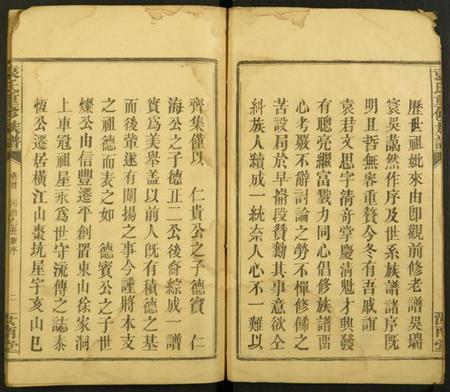 歷世祖妣來由卽觀前修老譜吳瑞
寰吳譪然作序及世系族譜諸序旣
明且晢無容重贅今冬有吾戚誼
袁君文思字淸奇掌慶淸魁才興發
有聰亮繼富戮力同心倡修族譜
心考覈不辭討論之勞不憚修餙之
苦設祠於早崙段贊勷其事意欲全
糾族人續成一統奈人心不一難以
齊集僅以 仁貴公之子德寳 仁
海公之子德正二公後裔綜成 譜
實爲美舉蓋以前人旣有積德之基
而後輩遂有闡揚之事今謹將本支
之祖德而表之如 德寳公之子世
燦公由信豐遷平創置東山徐家洞
上車冠祖屋永爲世守流傳之誌泰
恆公遷居橫江山棗坑屋宇亥山巳
袁氏重修族譜